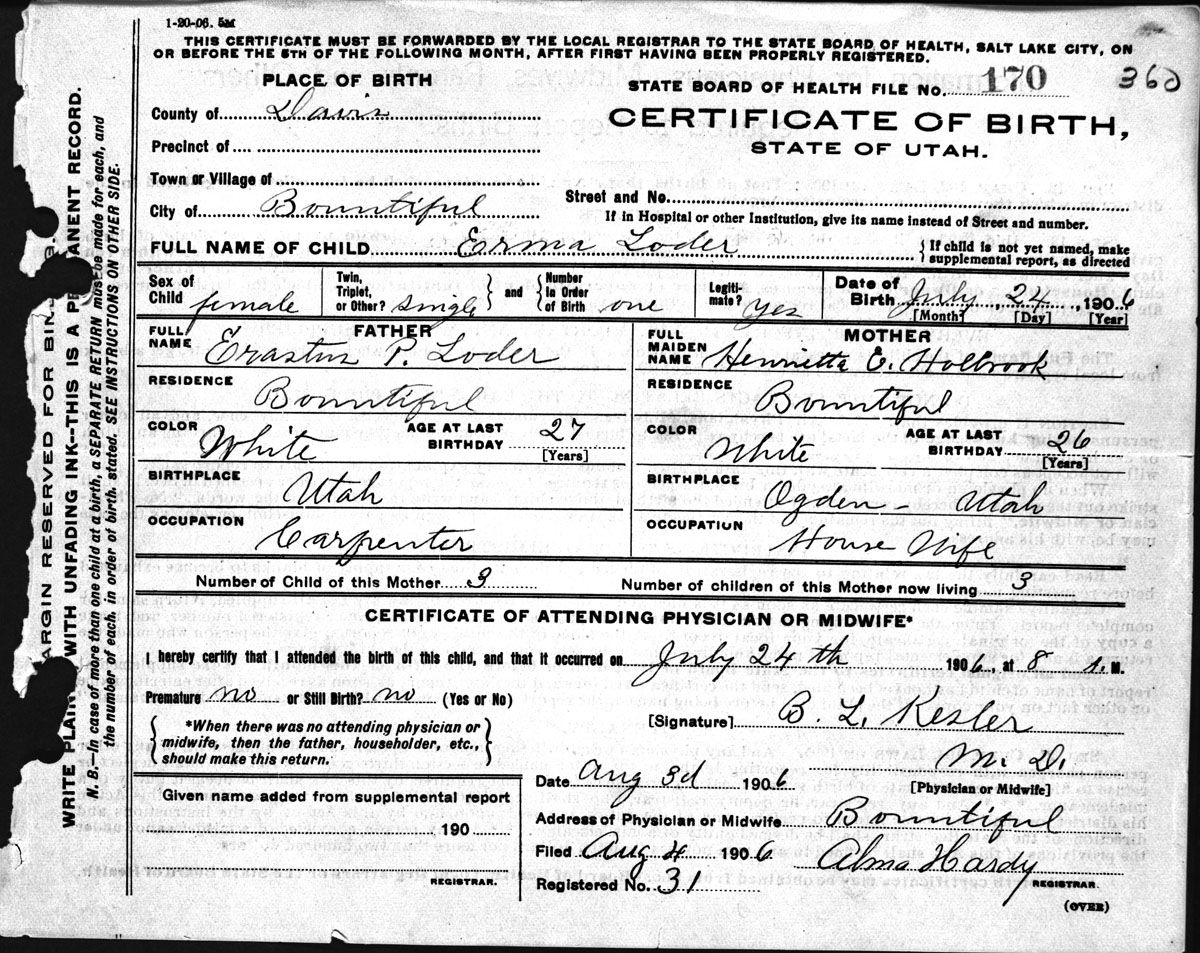 1-20-06. 5M
THIS CERTIFICATE MUST BE FORWARDED BY THE LOCAL REGISTRAR TO THE STATE BOARD OF HEALTH, SALT LAKE CITY, ON
OR BEFORE THE 5TH OF THE FOLLOWING MONTH, AFTER FIRST HAVING BEEN PROPERLY REGISTERED.
PLACE OF BIRTH
STATE BOARD OF HEALTH FILE NO. 170 360
County of Davis
CERTIFICATE OF BIRTH,
STATE OF UTAH.
Precinct of
Town or Village of
Street and No.
City of Bountiful
If in Hospital or other Institution, give its name instead of Street and number.
FULL NAME OF CHILD Erma Loder { If child is not yet named, make supplemental report, as directed
Sex of Child female Twin, Triplet, or Other? single } and { Number in Order of Birth one Legiti-mate? yes Date of Birth July 24, 1906
[Month] [Day] [Year]
FATHER
FULL NAME Erastus P. Loder
MOTHER
FULL MAIDEN NAME Henrietta E. Holbrook
RESIDENCE Bountiful
RESIDENCE Bountiful
COLOR White AGE AT LAST BIRTHDAY 27 [Years]
COLOR White AGE AT LAST BIRTHDAY 26 [Years]
BIRTHPLACE Utah
BIRTHPLACE Ogden - Utah
OCCUPATION Carpenter
OCCUPATION House Wife
Number of Child of this Mother 3 Number of children of this Mother now living 3
CERTIFICATE OF ATTENDING PHYSICIAN OR MIDWIFE*
I hereby certify that I attended the birth of this child, and that it occurred on July 24th 1906, at 8 M.
Premature no or Still Birth? no (Yes or No)
{ *When there was no attending physician or
midwife, then the father, householder, etc.,
should make this return. }
[Signature] B. L. Kesler
M. D.
[Physician or Midwife]
Date Aug 3d 1906
Given name added from supplemental report
190
REGISTRAR.
Address of Physician or Midwife Bountiful
Filed Aug 4 1906 Alma Hardy
REGISTRAR.
Registered No. 31
(OVER)
MARGIN RESERVED FOR
WRITE PLAIN WITH UNFADING INK--THIS IS A PERMANENT RECORD.
N. B.--In case of more than one child at a birth, a SEPARATE RETURN must be made for each, and
the number of each, in order of birth, stated. SEE INSTRUCTIONS ON OTHER SIDE.